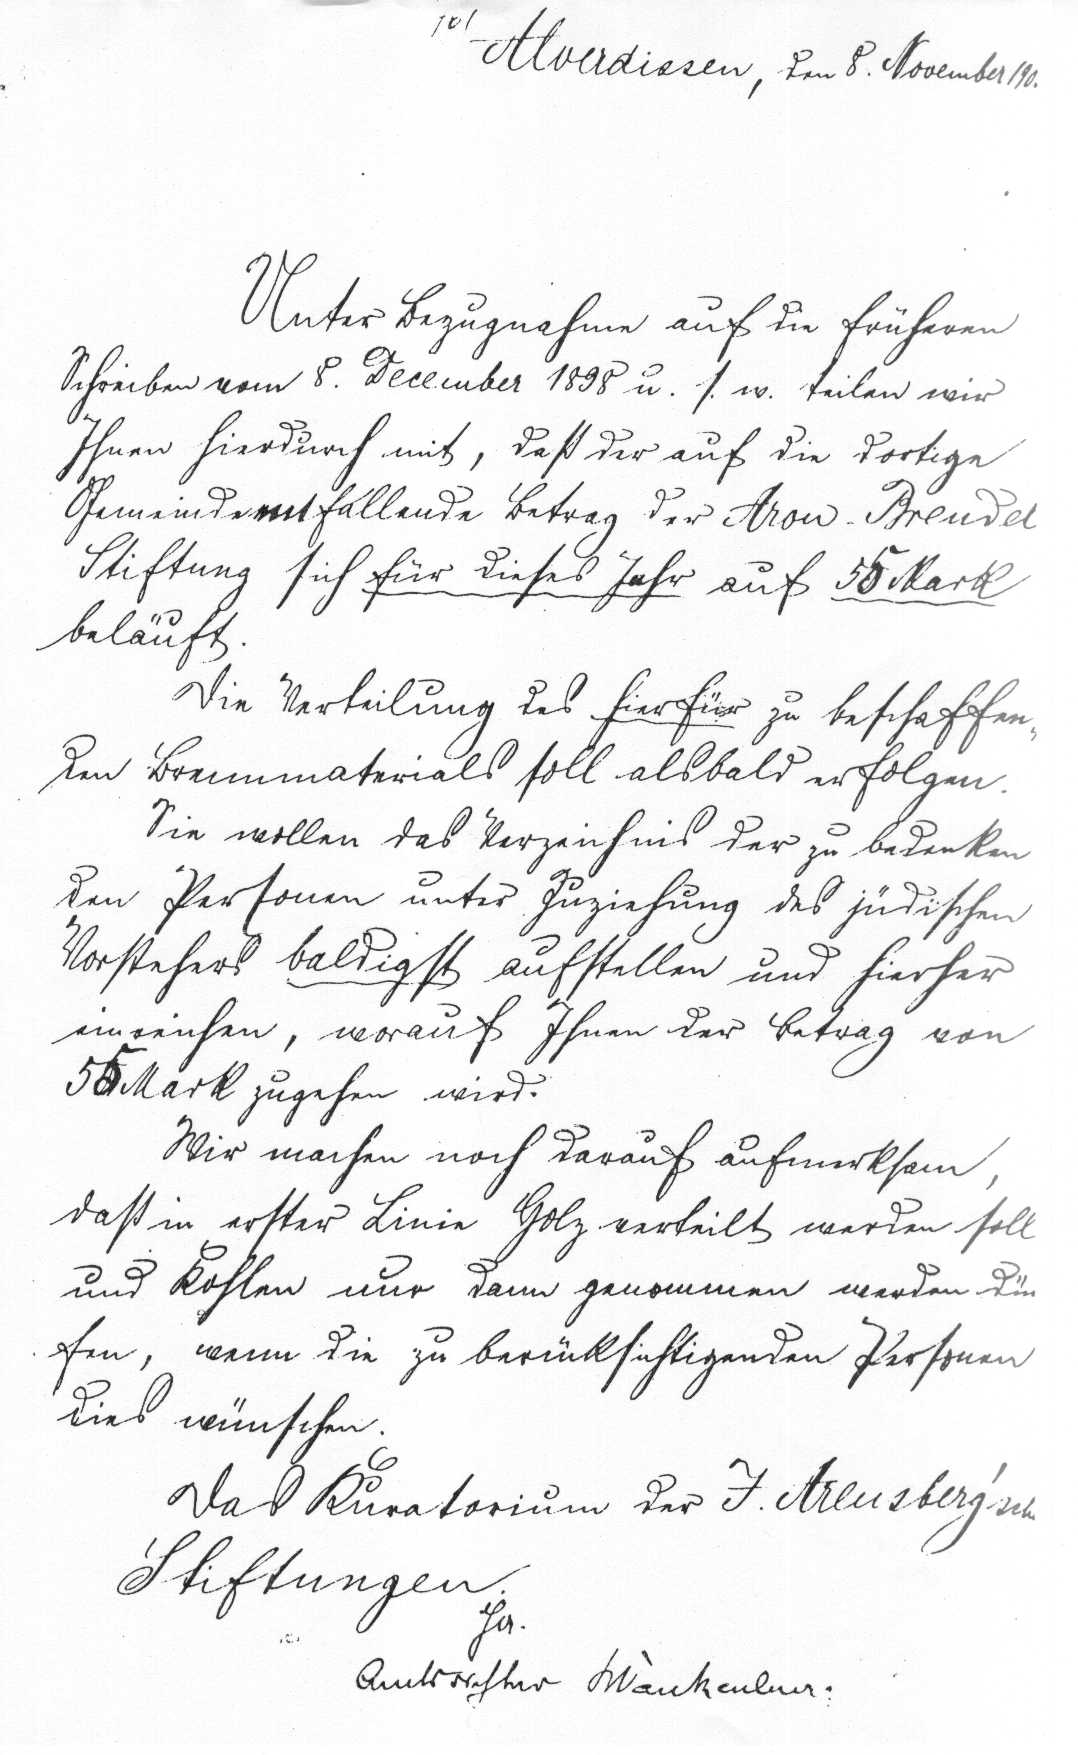 Alverdissen, den 8. November 190.
Unter Bezugnahme auf die früheren
Schreiben vom 8. December 1898 u. s. w. teilen wir
Ihnen hierdurch mit, daß der auf die dortige
Gemeinde entfallende Betrag der Aron-Brendel
Stiftung sich für dieses Jahr auf 55 Mark
beläuft.
Die Verteilung des hierfür zu beschaffen-
den Brennmaterials soll alsbald erfolgen.
Sie wollen das Verzeichnis der zu bedenken
den Personen unter Zuziehung des jüdischen
Vorstehers baldigst aufstellen und hierher
einreichen, worauf Ihnen der Betrag von
55 Mark zugehen wird.
Wir machen noch darauf aufmerksam,
daß in erster Linie Holz verteilt werden soll
und Kohlen nur dann genommen werden dür
fen, wenn die zu berücksichtigenden Personen
dies wünschen.
Das Kuratorium der J. Arensberg'schen
Stiftungen.
Amtsrichter